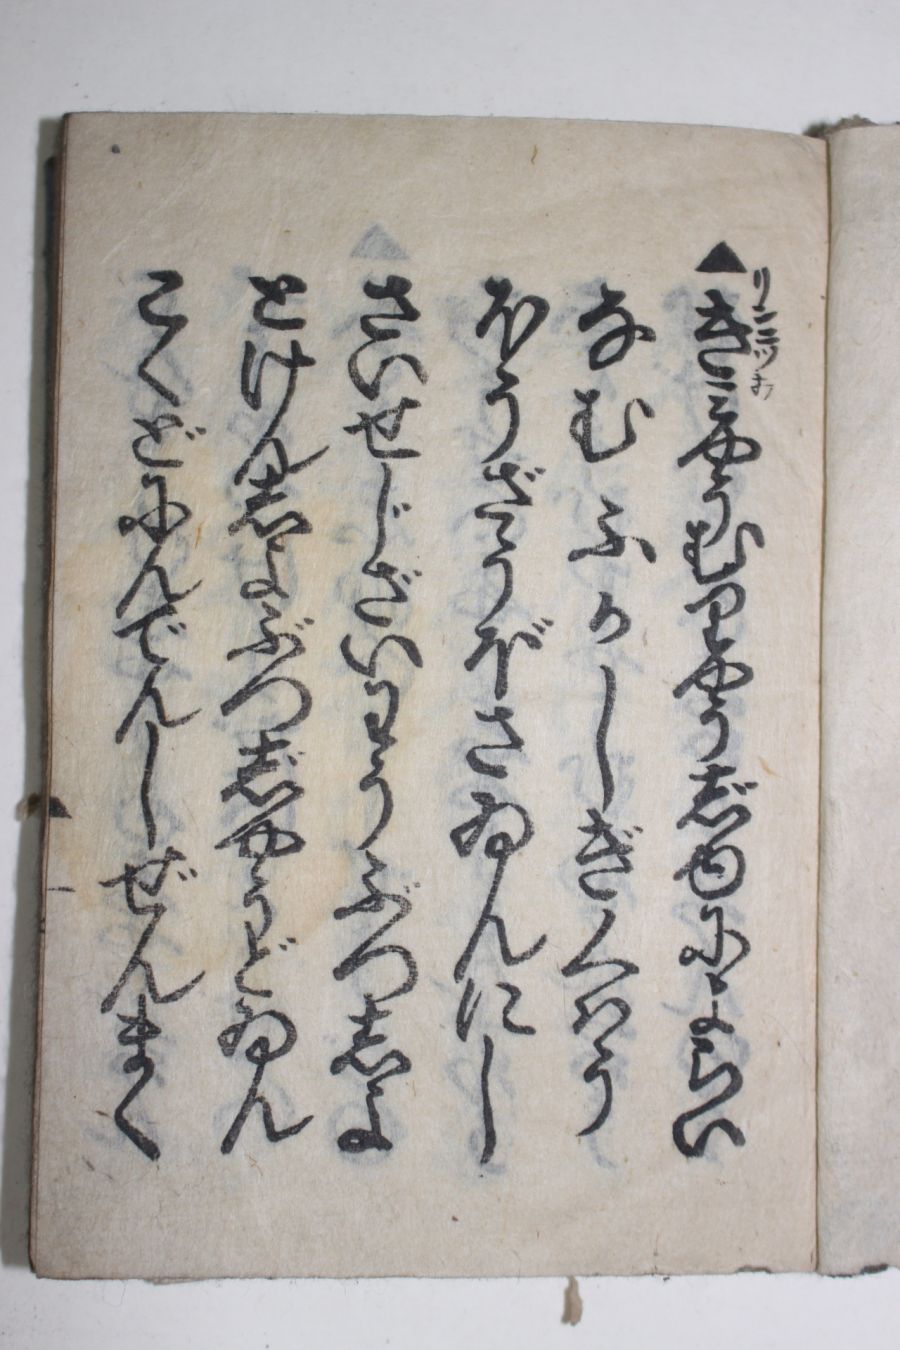 リン二ツ
▲きミやうむりやうじゆによらい
なむふかしぎくハう
ほうざうぼさゐんにし
さいせじざいわうぶつしよ
とけんしよぶつじやうどゐん
こくどにんでんしぜんまく